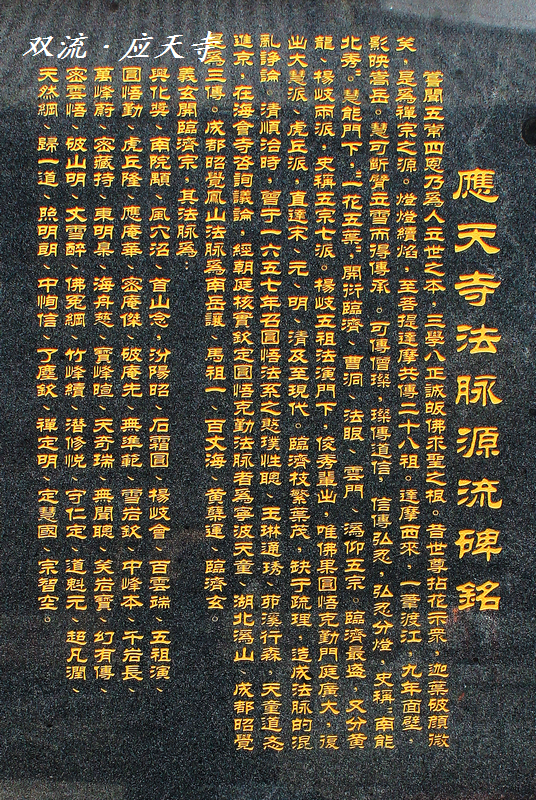 双流·应天寺
應天寺法脉源流碑銘
嘗聞五常四恩乃爲人立世之本，三學八正誠皈佛求聖之根。昔世尊拈花示衆，迦葉破顔微
笑，是爲禪宗之源。燈燈續焰，至菩提達摩共傳二十八祖。達摩西來，一葦渡江，九年面壁，
影映嵩岳。慧可斷臂立雪而得傳承。可傳僧璨，璨傳道信，信傳弘忍，弘忍分燈，史稱“南能
北秀”。慧能門下，“一花五葉”，開衍臨濟、曹洞、法眼、雲門、潙仰五宗。臨濟最盛，又分黄
龍、楊岐兩派，史稱五宗七派。楊岐五祖法演門下，俊秀輩出，唯佛果圓悟克勤門庭廣大，復
出大慧派、虎丘派，直達宋、元、明、清及至現代。臨濟枝繁葉茂，缺于疏理，造成法脉的混
亂諍論。清順治時，曾于一六五七年召圓悟法系之憨璞性聰、玉琳通琇、茆溪行森，天童道忞
進京，在海會寺咨詢議論，經朝庭核實欽定圓悟克勤法脉者爲寧波天童、湖北潙山、成都昭覺
是爲三傳。成都昭覺鳳山法脉爲南岳讓、馬祖一、百丈海、黄蘗運、臨濟玄。
義玄開臨濟宗，其法脉爲：
興化奬、南院顒、風穴沼、首山念，汾陽昭、石霜圓、楊岐會、百雲端、五祖演、
圓悟勤、虎丘隆、應庵華、密庵傑、破庵先、無準範、雪岩欽、中峰本、千岩長、
萬峰蔚、密藏持、東明旵、海舟慈、寶峰暄、天奇瑞、無聞聰、笑岩寶、幻有傳、
密雲悟、破山明、丈雪醉、佛冤綱、竹峰續、潜修悦、守仁定、道魁元、超凡潤、
天然綱、歸一道、照明朗、中恂信、了塵欽、禪定明、定慧國、宗智空。